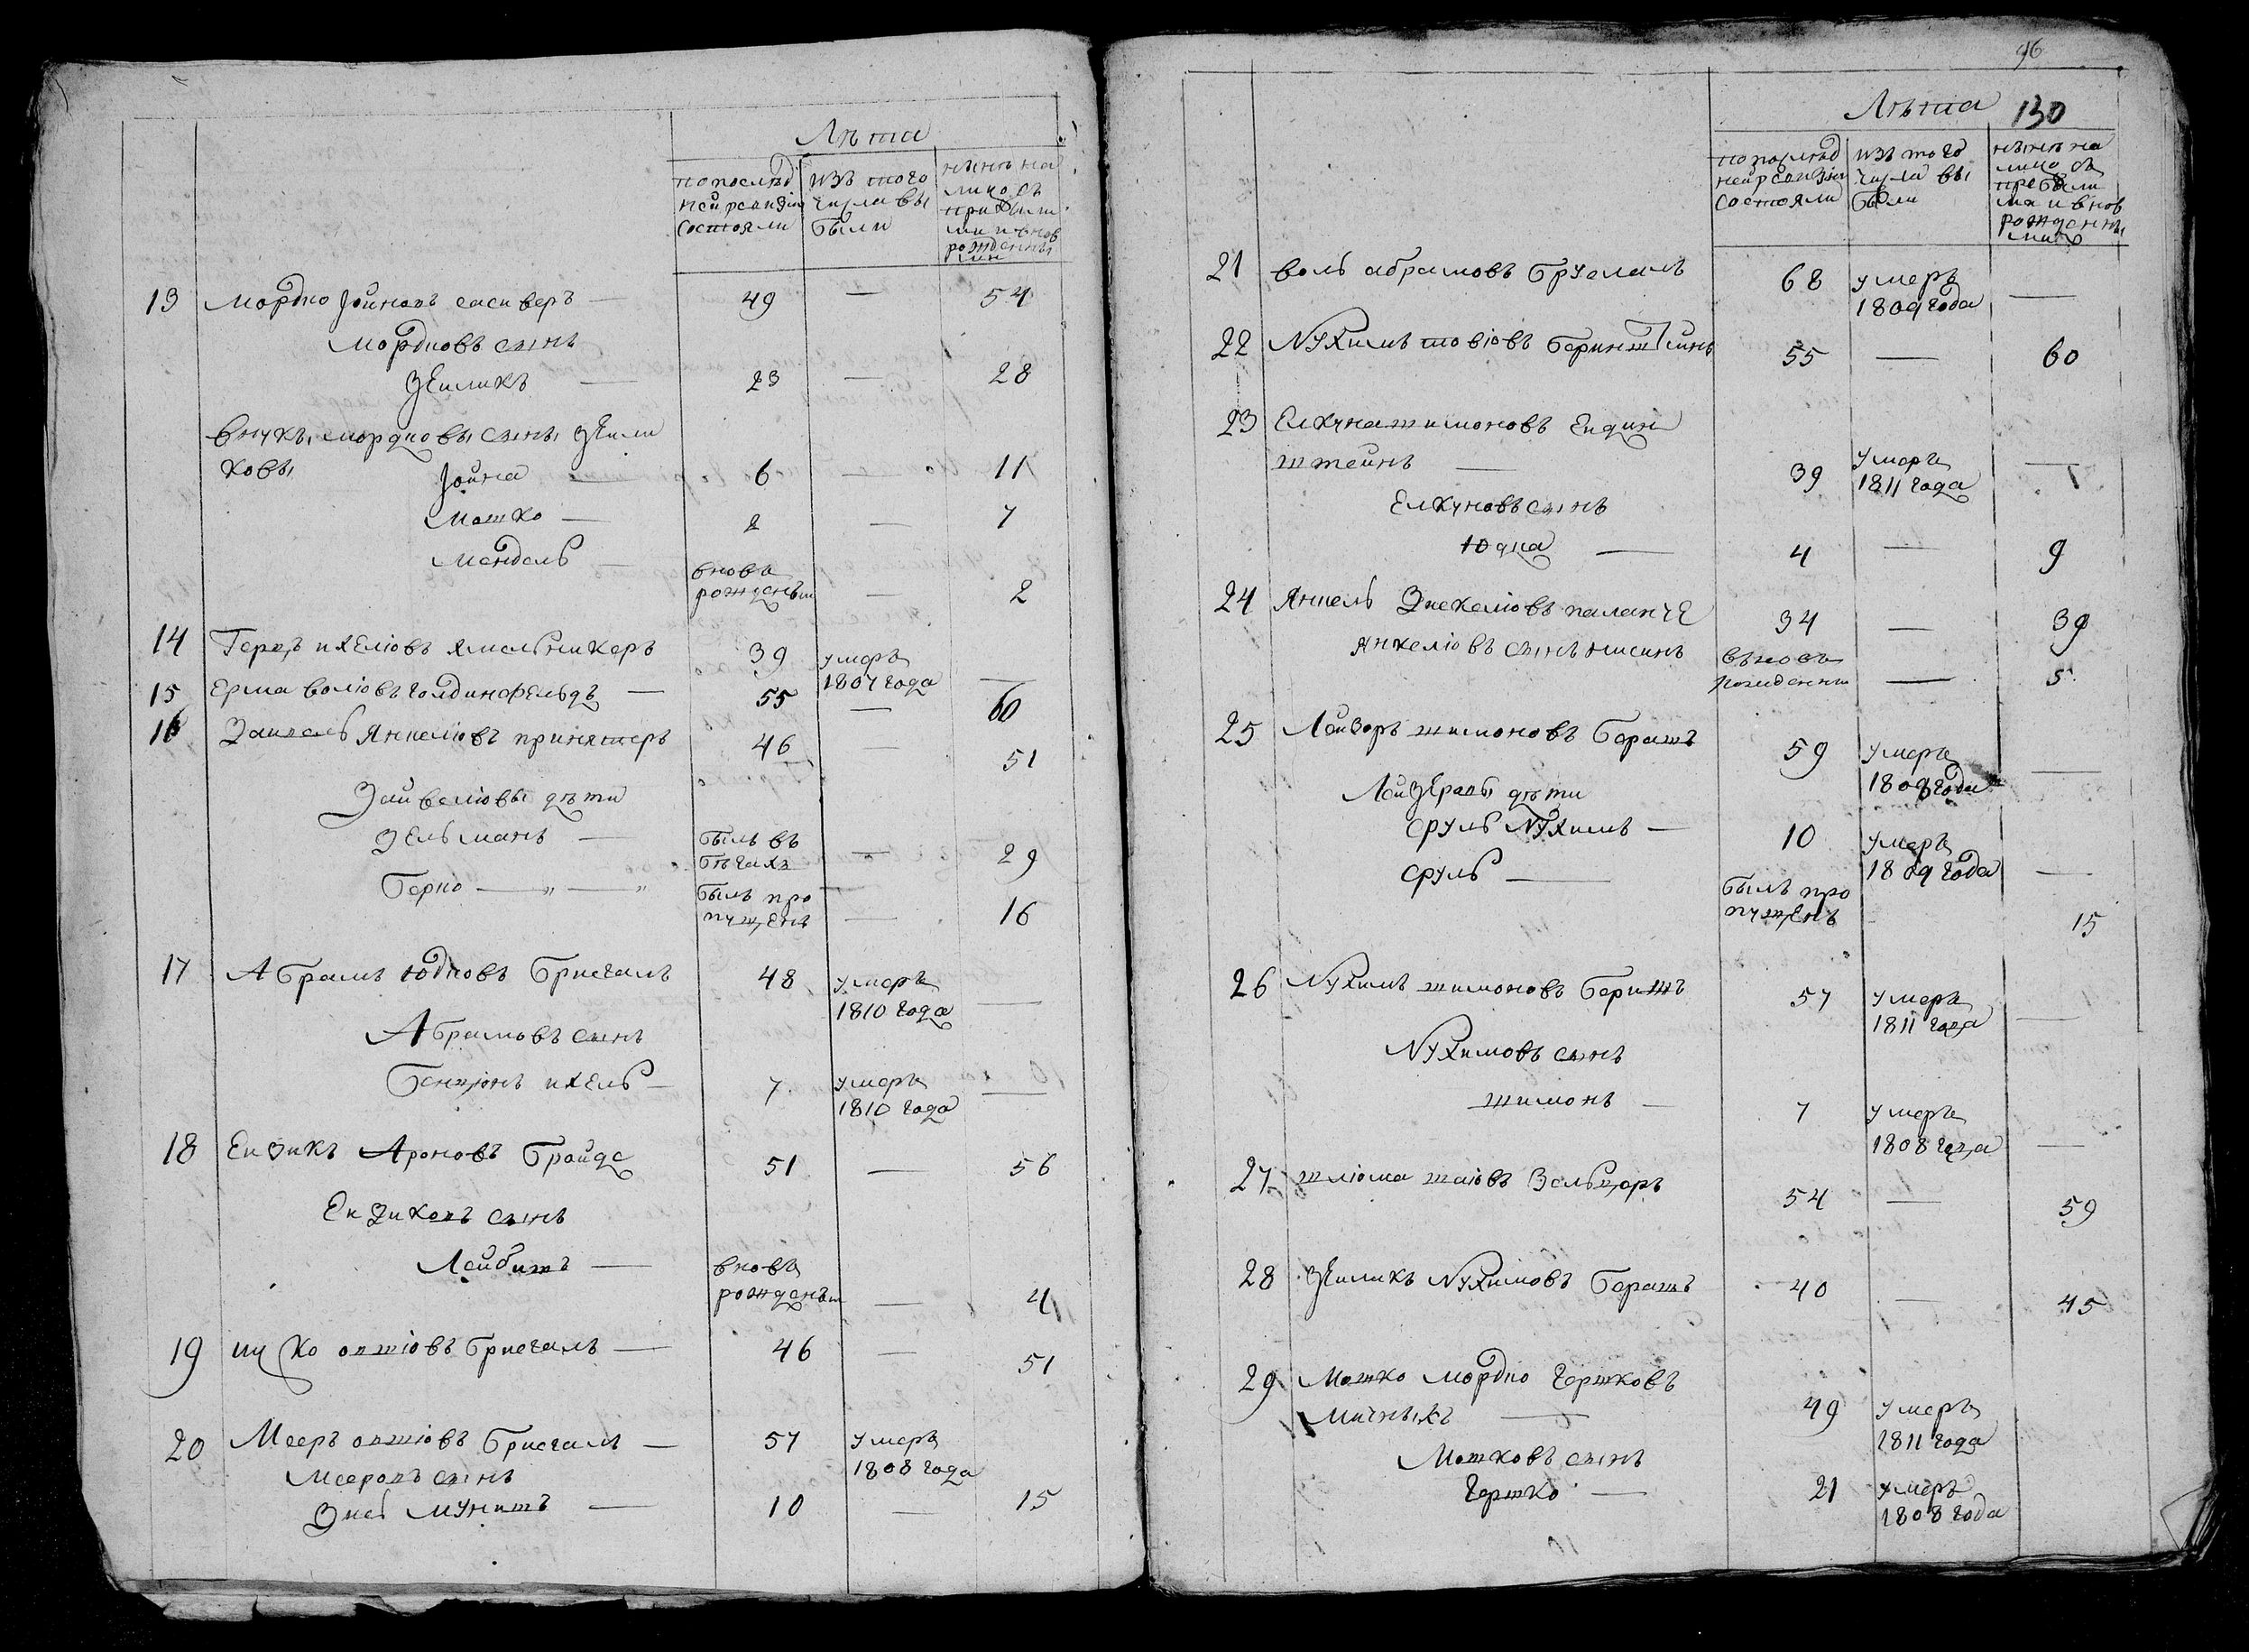 Лѣта
по послѣд
ней ревизіи
состояли
изъ того
числа вы
были
нынѣ на
лицо съ
прибылы
ми и внов
рожденны
ми
13 Мордко Іойновъ сасиверъ — 49 — 54
Мордковъ сынъ
Зеиликъ — 23 — 28
внукъ, мордковы сынъ, Зеили
ковы Іойна — 6 — 11
Мошко — 2 — 7
Мендель — вновь
рожденъи — 2
14 Герцъ ихеліовъ Ямпольникеръ 39 умеръ
1807 года —
15 Ерма воліовъ голдинфельдъ — 55 — 60
16 Зайвель Янкеліовъ принятеръ 46 — 51
Зайвеліовы дѣти
Зельманъ — былъ въ
бѣгахъ — 29
Берко — „ — „ былъ про
пущенъ — 16
17 Абрамъ Юдковъ Бригамъ 48 умеръ
1810 года —
Абрамовъ сынъ
Бенціонъ ихель — 7 умеръ
1810 года —
18 Еизикъ Ароновъ Бройде 51 — 56
Еизиковъ сынъ
Лейбишъ — вновь
рожденъи — 4
19 Ицко опшіовъ Бригамъ — 46 — 51
20 Мееръ опшіовъ Бригамъ — 57 умеръ
1808 года
Мееровъ сынъ
Зисъ Мунишъ — 10 — 15
96
Лѣта 130
по послѣд
ней ревизіи
состояли
изъ того
числа вы
были
нынѣ на
лицо съ
прибылы
ми и внов
рожденны
ми
21 воль абрамовъ Бруслагъ 68 умеръ
1809 года —
22 Нухимъ товіовъ Беринштинъ 55 — 60
23 Елкуна шимоновъ Ендин
штейнъ — 39 умеръ
1811 года —
Елкуновъ сынъ
Юдка — 4 — 9
24 Янкель Зискеліовъ паланче 34 — 39
Янкеліовъ сынъ нисинъ вьновь
рожденни — 5
25 Лейзоръ шимоновъ Берашъ 59 умеръ
1808 года —
Лейзеровы дѣти
сруль Нухимъ — 10 умеръ
1809 года —
сруль — былъ про
пущенъ 15
26 Нухимъ шимоновъ Беришъ 57 умеръ
1811 года —
Нухимовъ сынъ
шимонъ — 7 умеръ
1808 года —
27 шліома шаіовъ Зельцеръ 54 — 59
28 Зеиликъ Нухимовъ Берашъ 40 — 45
29 Мошко мордко гершковъ
мичныкъ — 49 умеръ
1811 года
Мошковъ сынъ
Гершко — 21 умеръ
1808 года